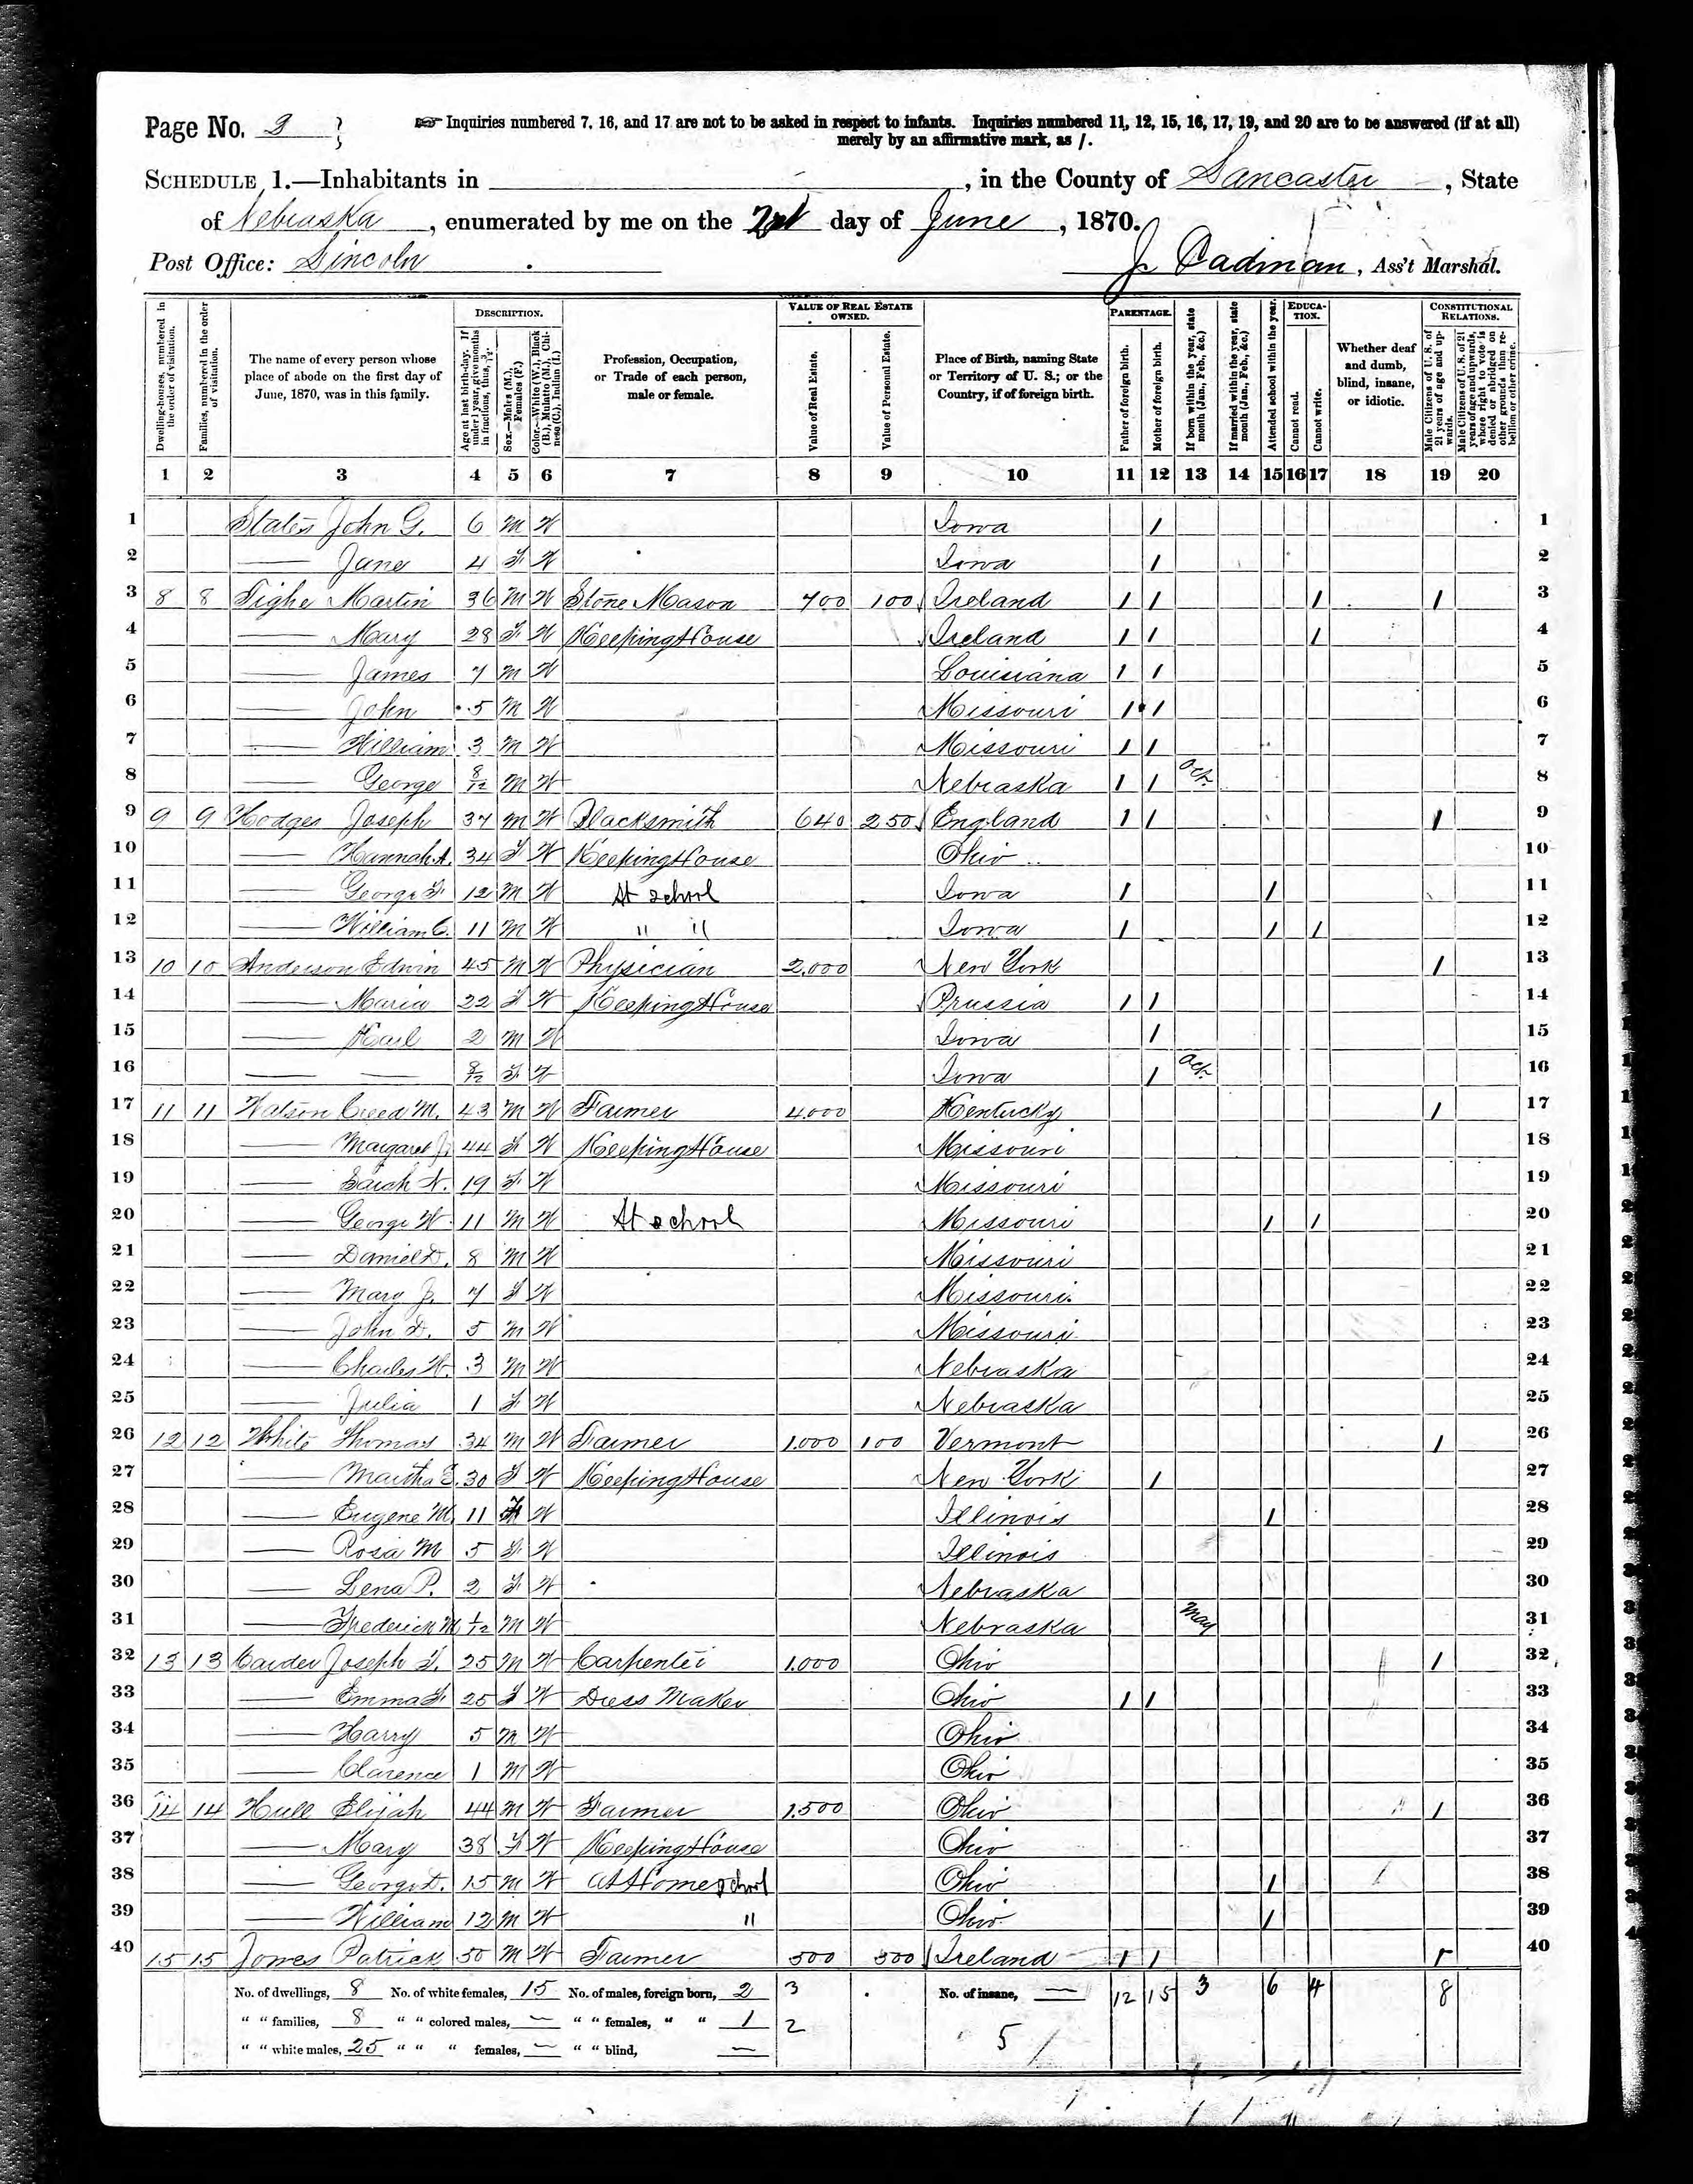 Page No. 3
☞ Inquiries numbered 7, 16, and 17 are not to be asked in respect to infants. Inquiries numbered 11, 12, 15, 16, 17, 19, and 20 are to be answered (if at all)
merely by an affirmative mark, as /.
SCHEDULE 1.—Inhabitants in , in the County of Lancaster, State
of Nebraska, enumerated by me on the 2nd day of June, 1870.
Post Office: Lincoln
J. Cadman, Ass't Marshal.
Dwelling-houses, numbered in the order of visitation.
Families, numbered in the order of visitation.
The name of every person whose place of abode on the first day of June, 1870, was in this family.
DESCRIPTION.
Age at last birth-day. If under 1 year, give months in fractions, thus, 3/12.
Sex.—Males (M.), Females (F.)
Color.—White (W.), Black (B.), Mulatto (M.), Chinese (C.), Indian (I.)
Profession, Occupation, or Trade of each person, male or female.
VALUE OF REAL ESTATE OWNED.
Value of Real Estate.
Value of Personal Estate.
Place of Birth, naming State or Territory of U. S.; or the Country, if of foreign birth.
PARENTAGE.
Father of foreign birth.
Mother of foreign birth.
If born within the year, state month (Jan., Feb., &c.)
If married within the year, state month (Jan., Feb., &c.)
Attended school within the year.
EDUCATION.
Cannot read.
Cannot write.
Whether deaf and dumb, blind, insane, or idiotic.
CONSTITUTIONAL RELATIONS.
Male Citizens of U. S. of 21 years of age and upwards.
Male Citizens of U. S. of 21 years of age and upwards, where right to vote is denied or abridged on other grounds than rebellion or other crime.
1 2 3 4 5 6 7 8 9 10 11 12 13 14 15 16 17 18 19 20
1 States John G. 6 M W Iowa / 1
2 — Jane 4 F W Iowa / 2
3 8 8 Tighe Martin 36 M W Stone Mason 700 100 Ireland / / / / 3
4 — Mary 28 F W Keeping House Ireland / / / 4
5 — James 7 M W Louisiana / / 5
6 — John 5 M W Missouri / / 6
7 — William 3 M W Missouri / / 7
8 — George 8/12 M W Nebraska / / Oct. 8
9 9 9 Hodges Joseph 37 M W Blacksmith 640 250 England / / / 9
10 — Hannah A. 34 F W Keeping House Ohio 10
11 — George F. 12 M W At school Iowa / / 11
12 — William C. 11 M W " " Iowa / / / 12
13 10 10 Anderson Edwin 45 M W Physician 2,000 New York / 13
14 — Maria 22 F W Keeping House Prussia / / 14
15 — Karl 2 M W Iowa / 15
16 — — 8/12 F W Iowa / Oct. 16
17 11 11 Watson Creed M. 43 M W Farmer 4,000 Kentucky / 17
18 — Margaret J. 44 F W Keeping House Missouri 18
19 — Sarah N. 19 F W Missouri 19
20 — George W. 11 M W At school Missouri / / 20
21 — Daniel D. 8 M W Missouri 21
22 — Mary J. 7 F W Missouri 22
23 — John D. 5 M W Missouri 23
24 — Charles W. 3 M W Nebraska 24
25 — Julia 1 F W Nebraska 25
26 12 12 White Thomas 34 M W Farmer 1,000 100 Vermont / 26
27 — Martha E. 30 F W Keeping House New York / 27
28 — Eugene M. 11 W Illinois / 28
29 — Rosa M 5 F W Illinois 29
30 — Lena P. 2 F W Nebraska 30
31 — Frederick M 1/12 M W Nebraska May 31
32 13 13 Carder Joseph T. 25 M W Carpenter 1,000 Ohio / 32
33 — Emma F. 25 F W Dress Maker Ohio / / 33
34 — Harry 5 M W Ohio 34
35 — Clarence 1 M W Ohio 35
36 14 14 Hull Elijah 44 M W Farmer 1,500 Ohio / 36
37 — Mary 38 F W Keeping House Ohio 37
38 — George D. 15 M W At Home school Ohio / 38
39 — William 12 M W " Ohio / 39
40 15 15 Jones Patrick 50 M W Farmer 500 300 Ireland / / / 40
No. of dwellings, 8 No. of white females, 15 No. of males, foreign born, 2 3 No. of insane, — 12 15 3 6 4 8
" " families, 8 " " colored males, — " " females, " " 1 2 5
" " white males, 25 " " " females, — " " blind, —